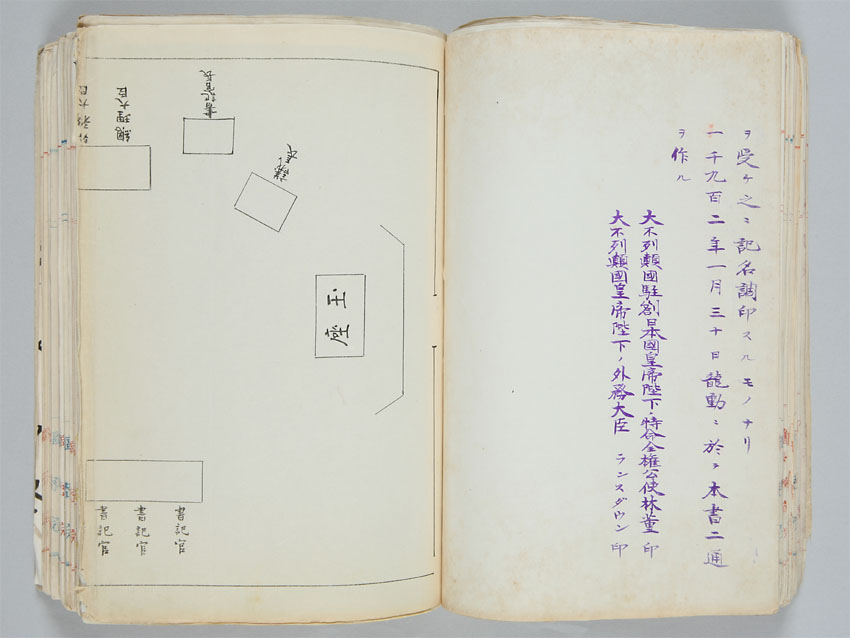 ヲ受ケ之ニ記名調印スルモノナリ
一千九百二年一月三十日龍動ニ於テ本書二通
ヲ作ル
大不列顛國駐劄日本國皇帝陛下ノ特命全権公使林董 印
大不列顛國皇帝陛下ノ外務大臣 ランスダウン 印
書記官長
議長
総理大臣
玉座
書記官
書記官
書記官